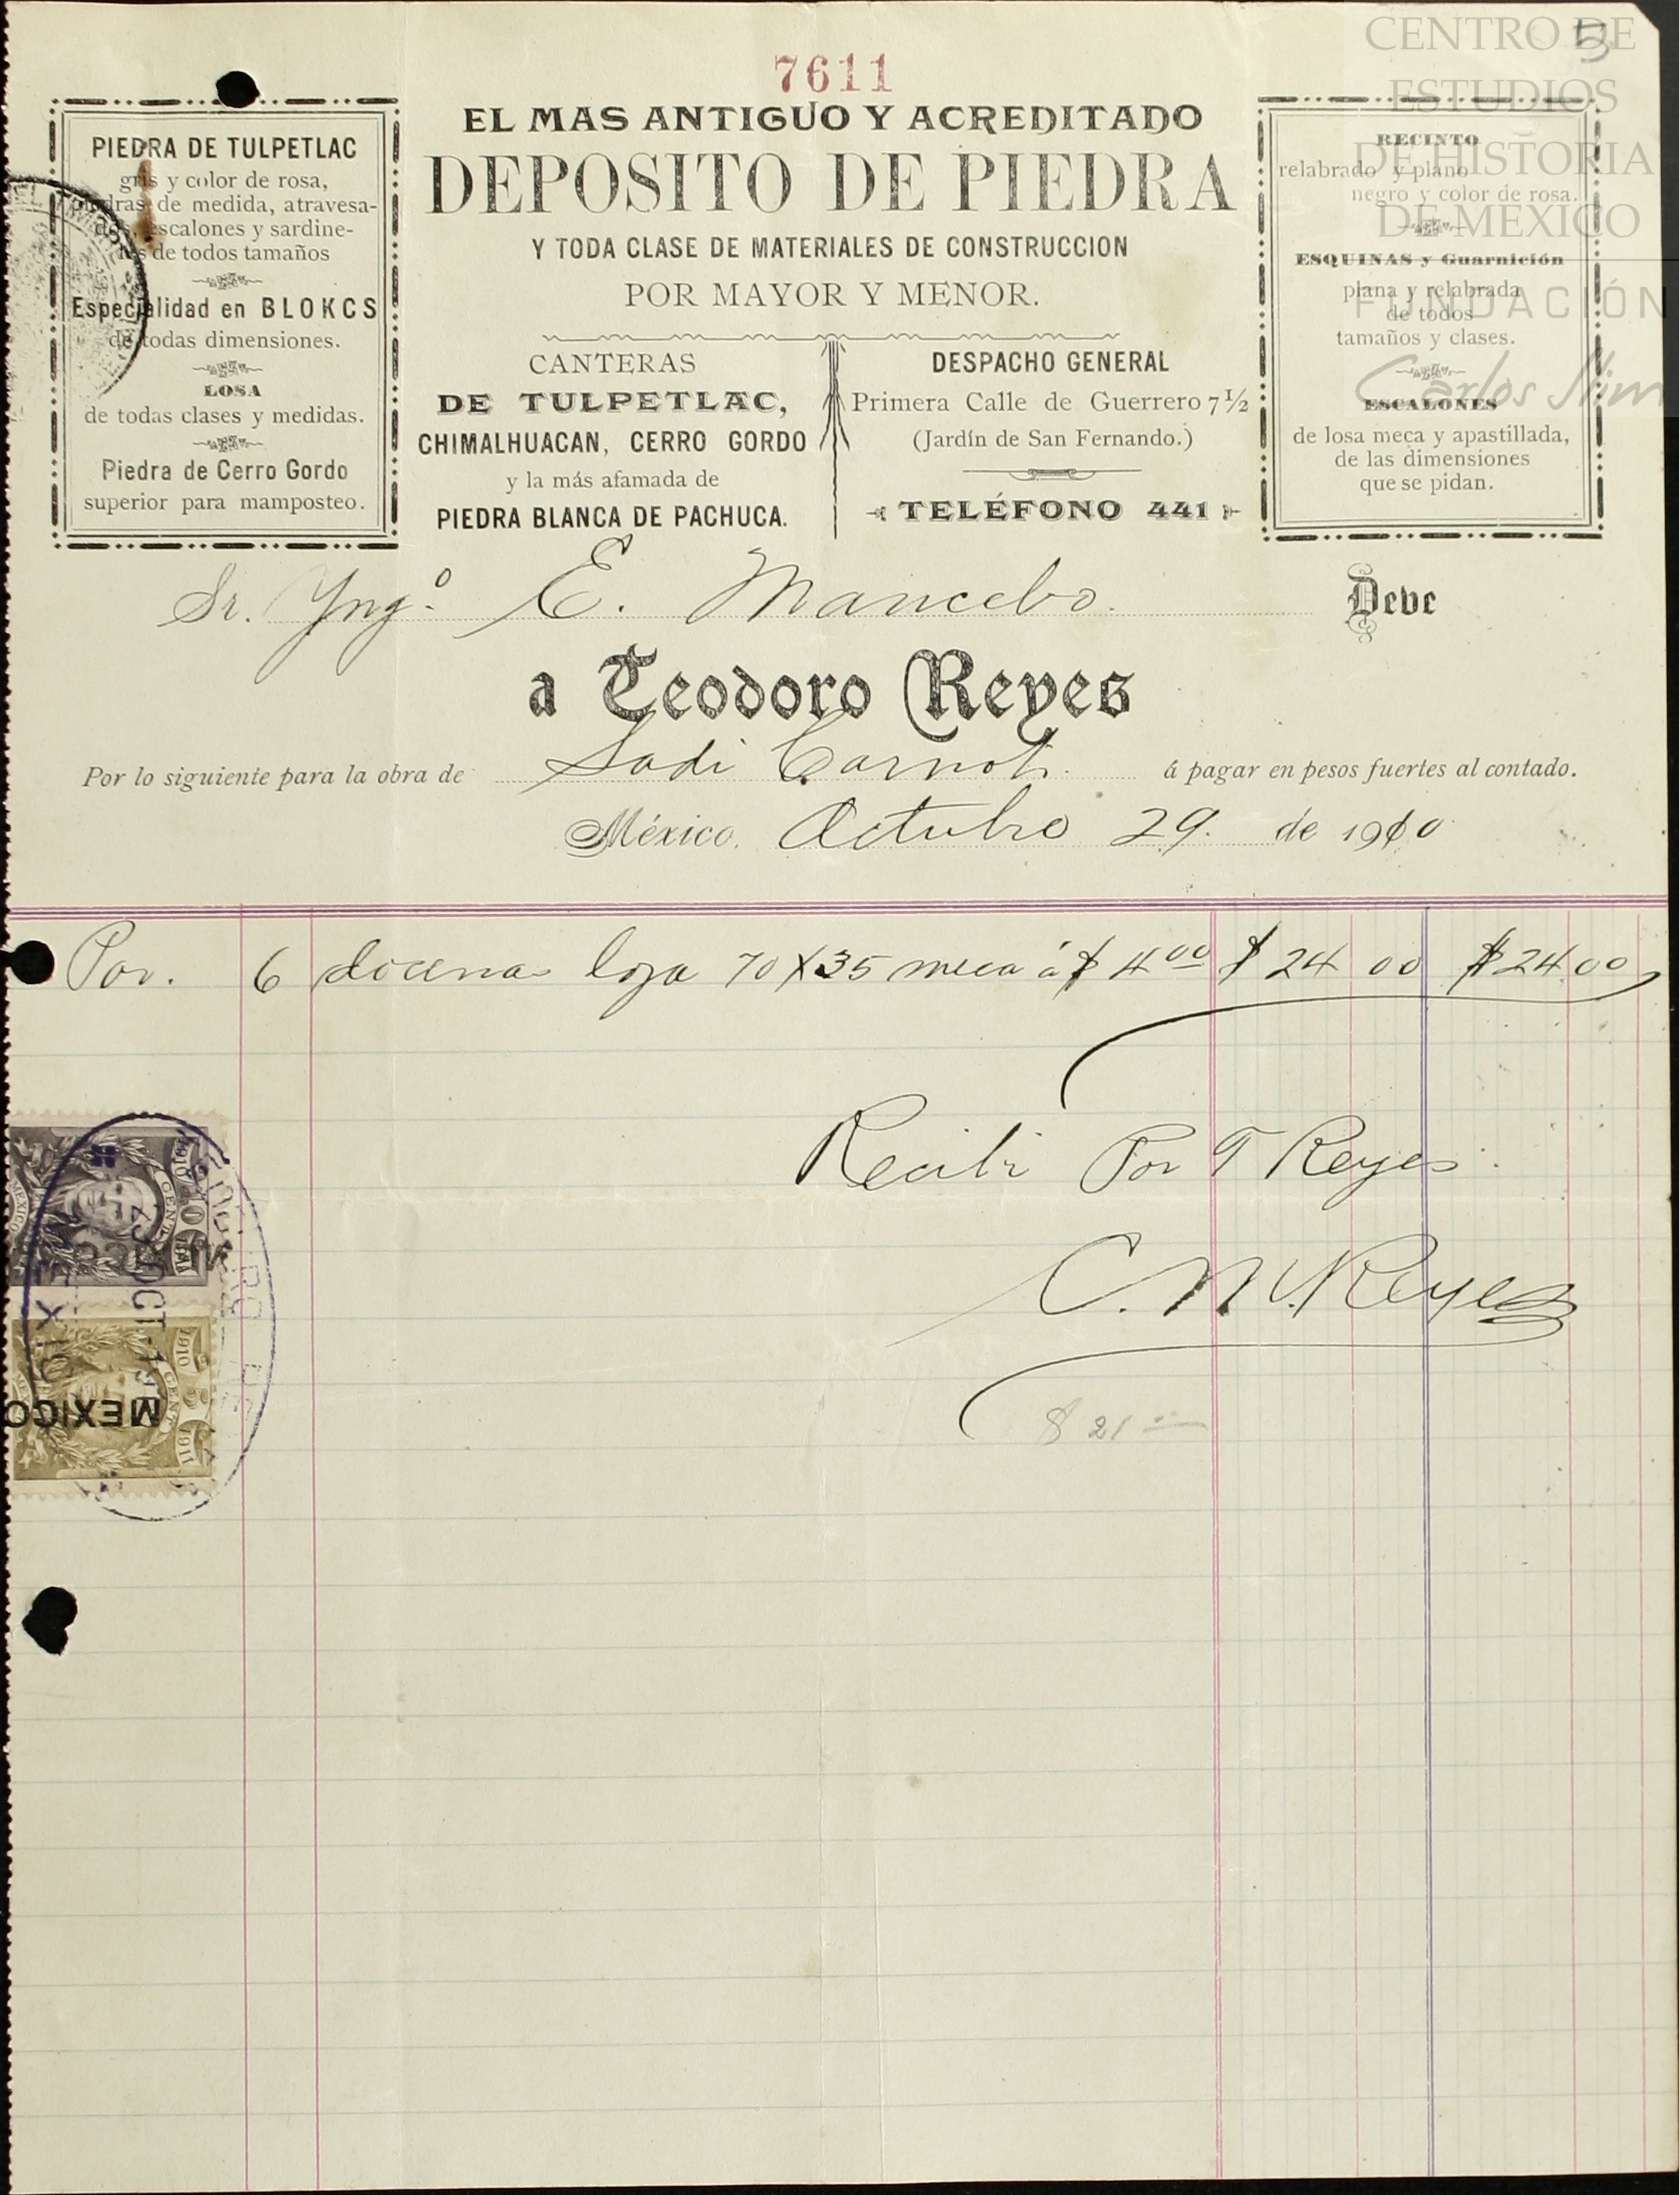 7611
5
EL MAS ANTIGUO Y ACREDITADO
DEPOSITO DE PIEDRA
Y TODA CLASE DE MATERIALES DE CONSTRUCCION
POR MAYOR Y MENOR.
PIEDRA DE TULPETLAC
gris y color de rosa,
de medida, atravesa-
escalones y sardine-
de todos tamaños
Especialidad en BLOKCS
de todas dimensiones.
LOSA
de todas clases y medidas.
Piedra de Cerro Gordo
superior para mamposteo.
CANTERAS
DE TULPETLAC,
CHIMALHUACAN, CERRO GORDO
y la más afamada de
PIEDRA BLANCA DE PACHUCA.
DESPACHO GENERAL
Primera Calle de Guerrero 7 ½
(Jardín de San Fernando.)
TELÉFONO 441
RECINTO
relabrado y plano
negro y color de rosa.
ESQUINAS y Guarnición
plana y relabrada
de todos
tamaños y clases.
ESCALONES
de losa meca y apastillada,
de las dimensiones
que se pidan.
CENTRO DE
ESTUDIOS
DE HISTORIA
DE MÉXICO
FUNDACIÓN
Carlos Slim
Sr. Yngo. E. Mancebo. Debe
a Teodoro Reyes
Por lo siguiente para la obra de Sadi Carnot. á pagar en pesos fuertes al contado.
México, Octubre 29. de 1910
Por. 6 docenas loza 70 X 35 meca á $ 4 00 $ 24 00 $ 24 00
Recibi Por T Reyes.
C. M. Reyes
$ 21
1910
CENT
1911
OCT
1910
CENT
1911
MEXICO